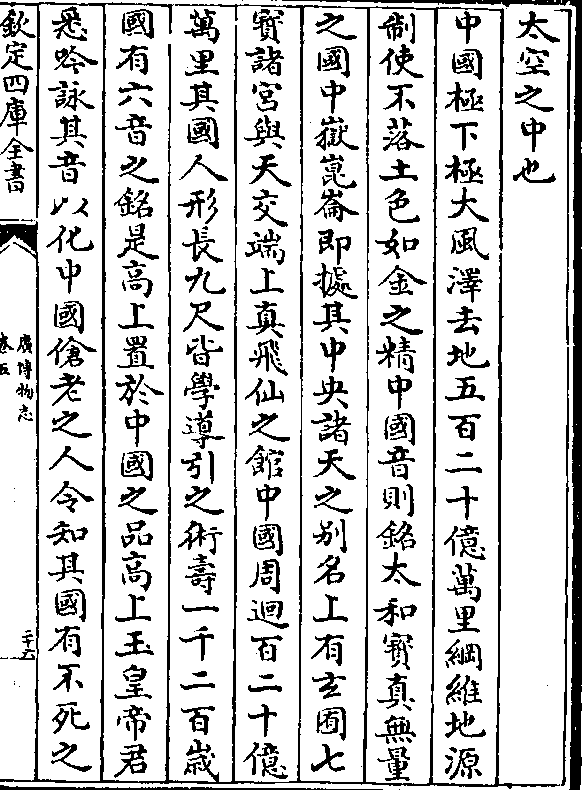 太空之中也
中國極下極大風澤去地五百二十億萬里綱維地源
制使不落土色如金之精中國音則銘太和寳真無量
之國中嶽崑崙即據其中央諸天之别名上有玄圃七
寳諸宫與天交端上真飛仙之館中國周迴百二十億
萬里其國人形長九尺皆學導引之術壽一千二百歳
國有六音之銘是高上置於中國之品高上玉皇帝君
悉吟詠其音以化中國傖老之人令知其國有不死之
欽定四庫全書
廣博物志
卷五
二十六